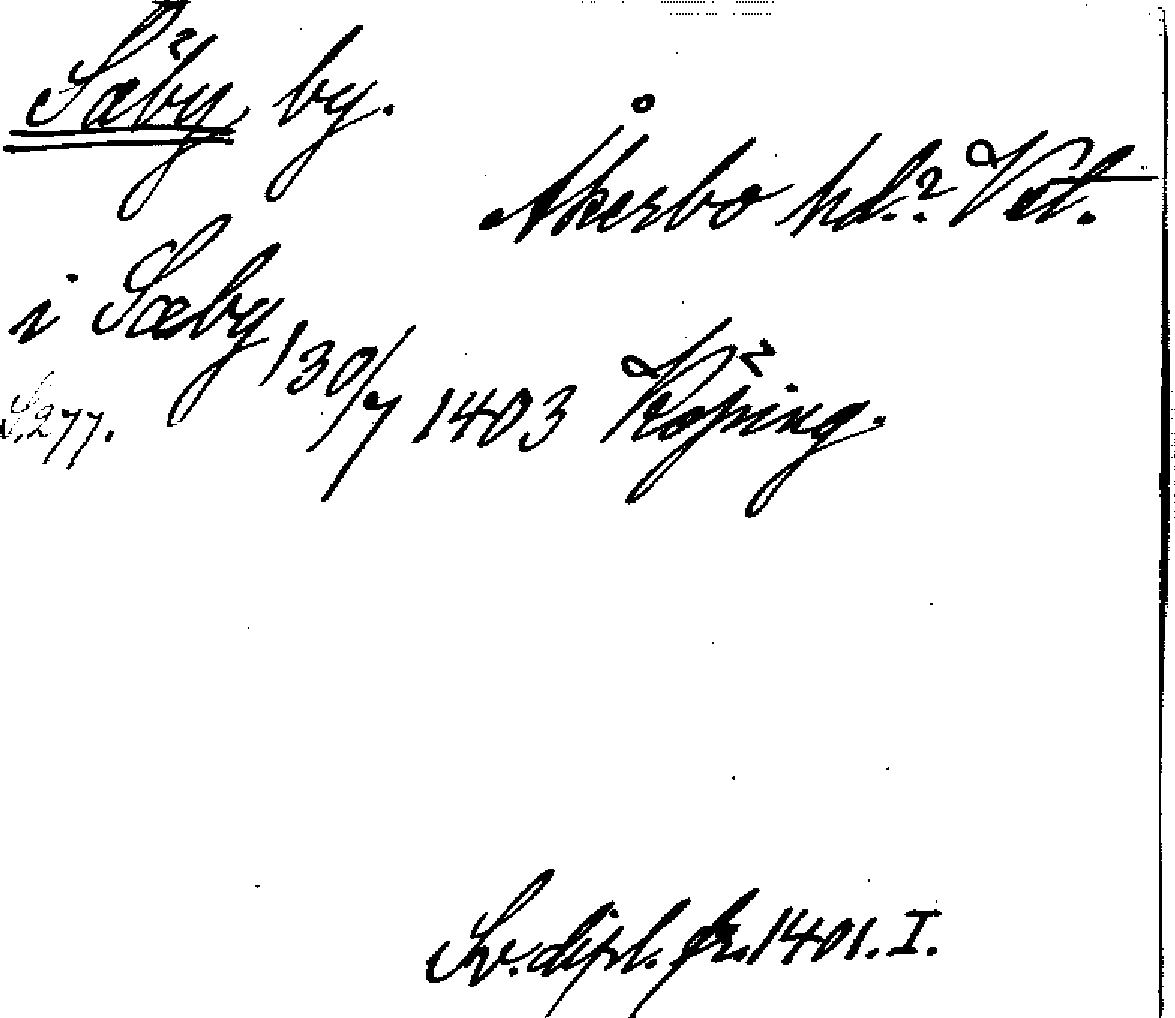 Säby by.
Åkerbo hd.? Vstl.
i Sæby 30/7 1403 Köping.
S. 277.
Sv. dipl. fr. 1401. I.